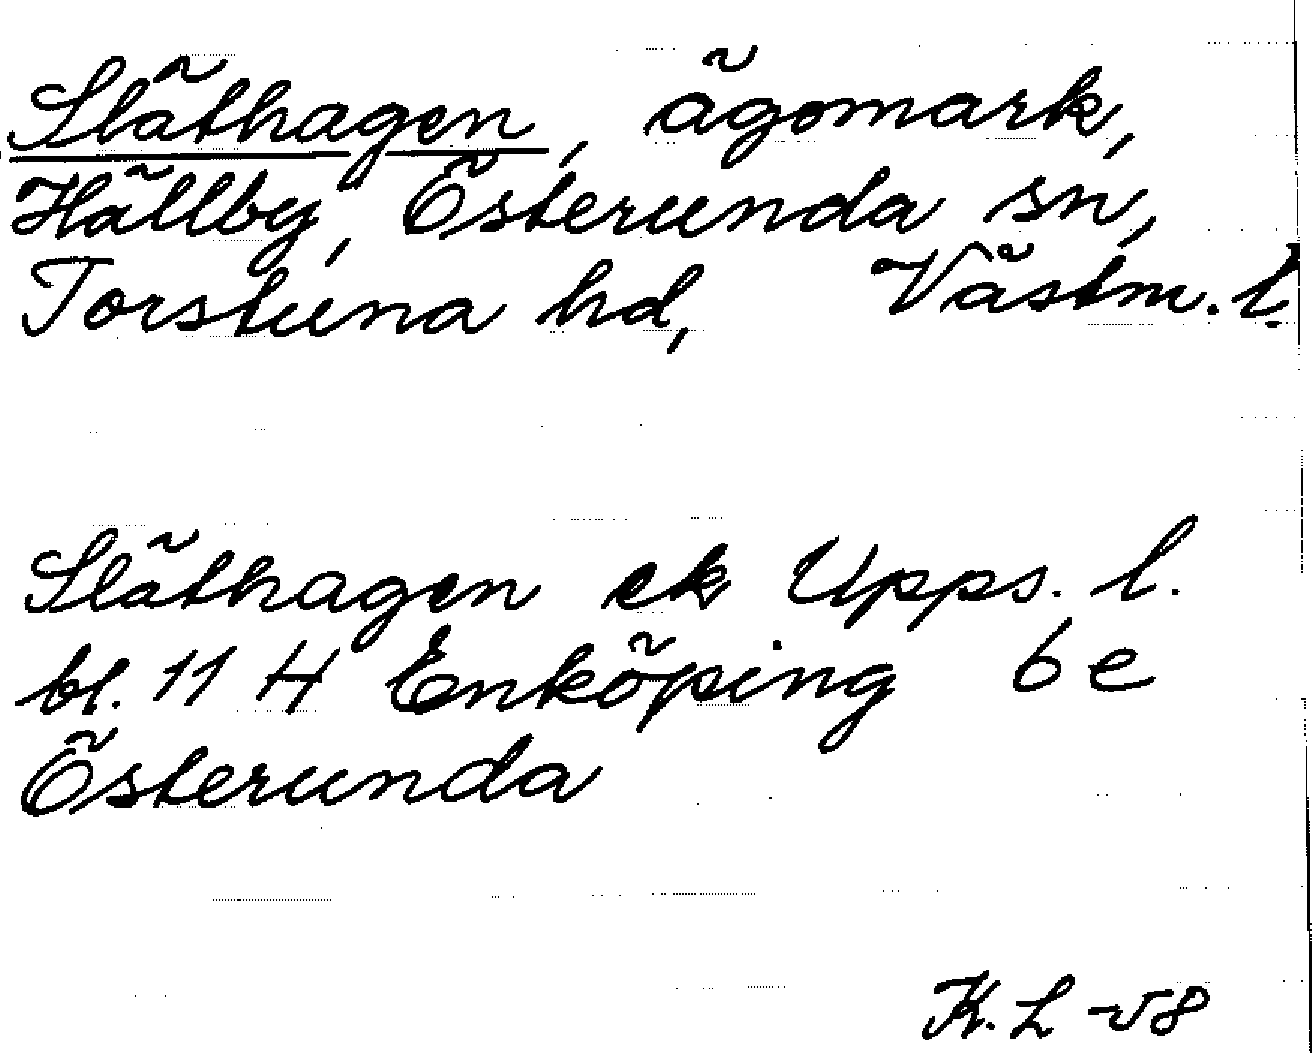 Släthagen, ägomark,
Hällby, Österunda sn,
Torstuna hd, Västm. l.
Släthagen ek Upps. l.
bl. 11 H Enköping 6e
Österunda
K. L -58